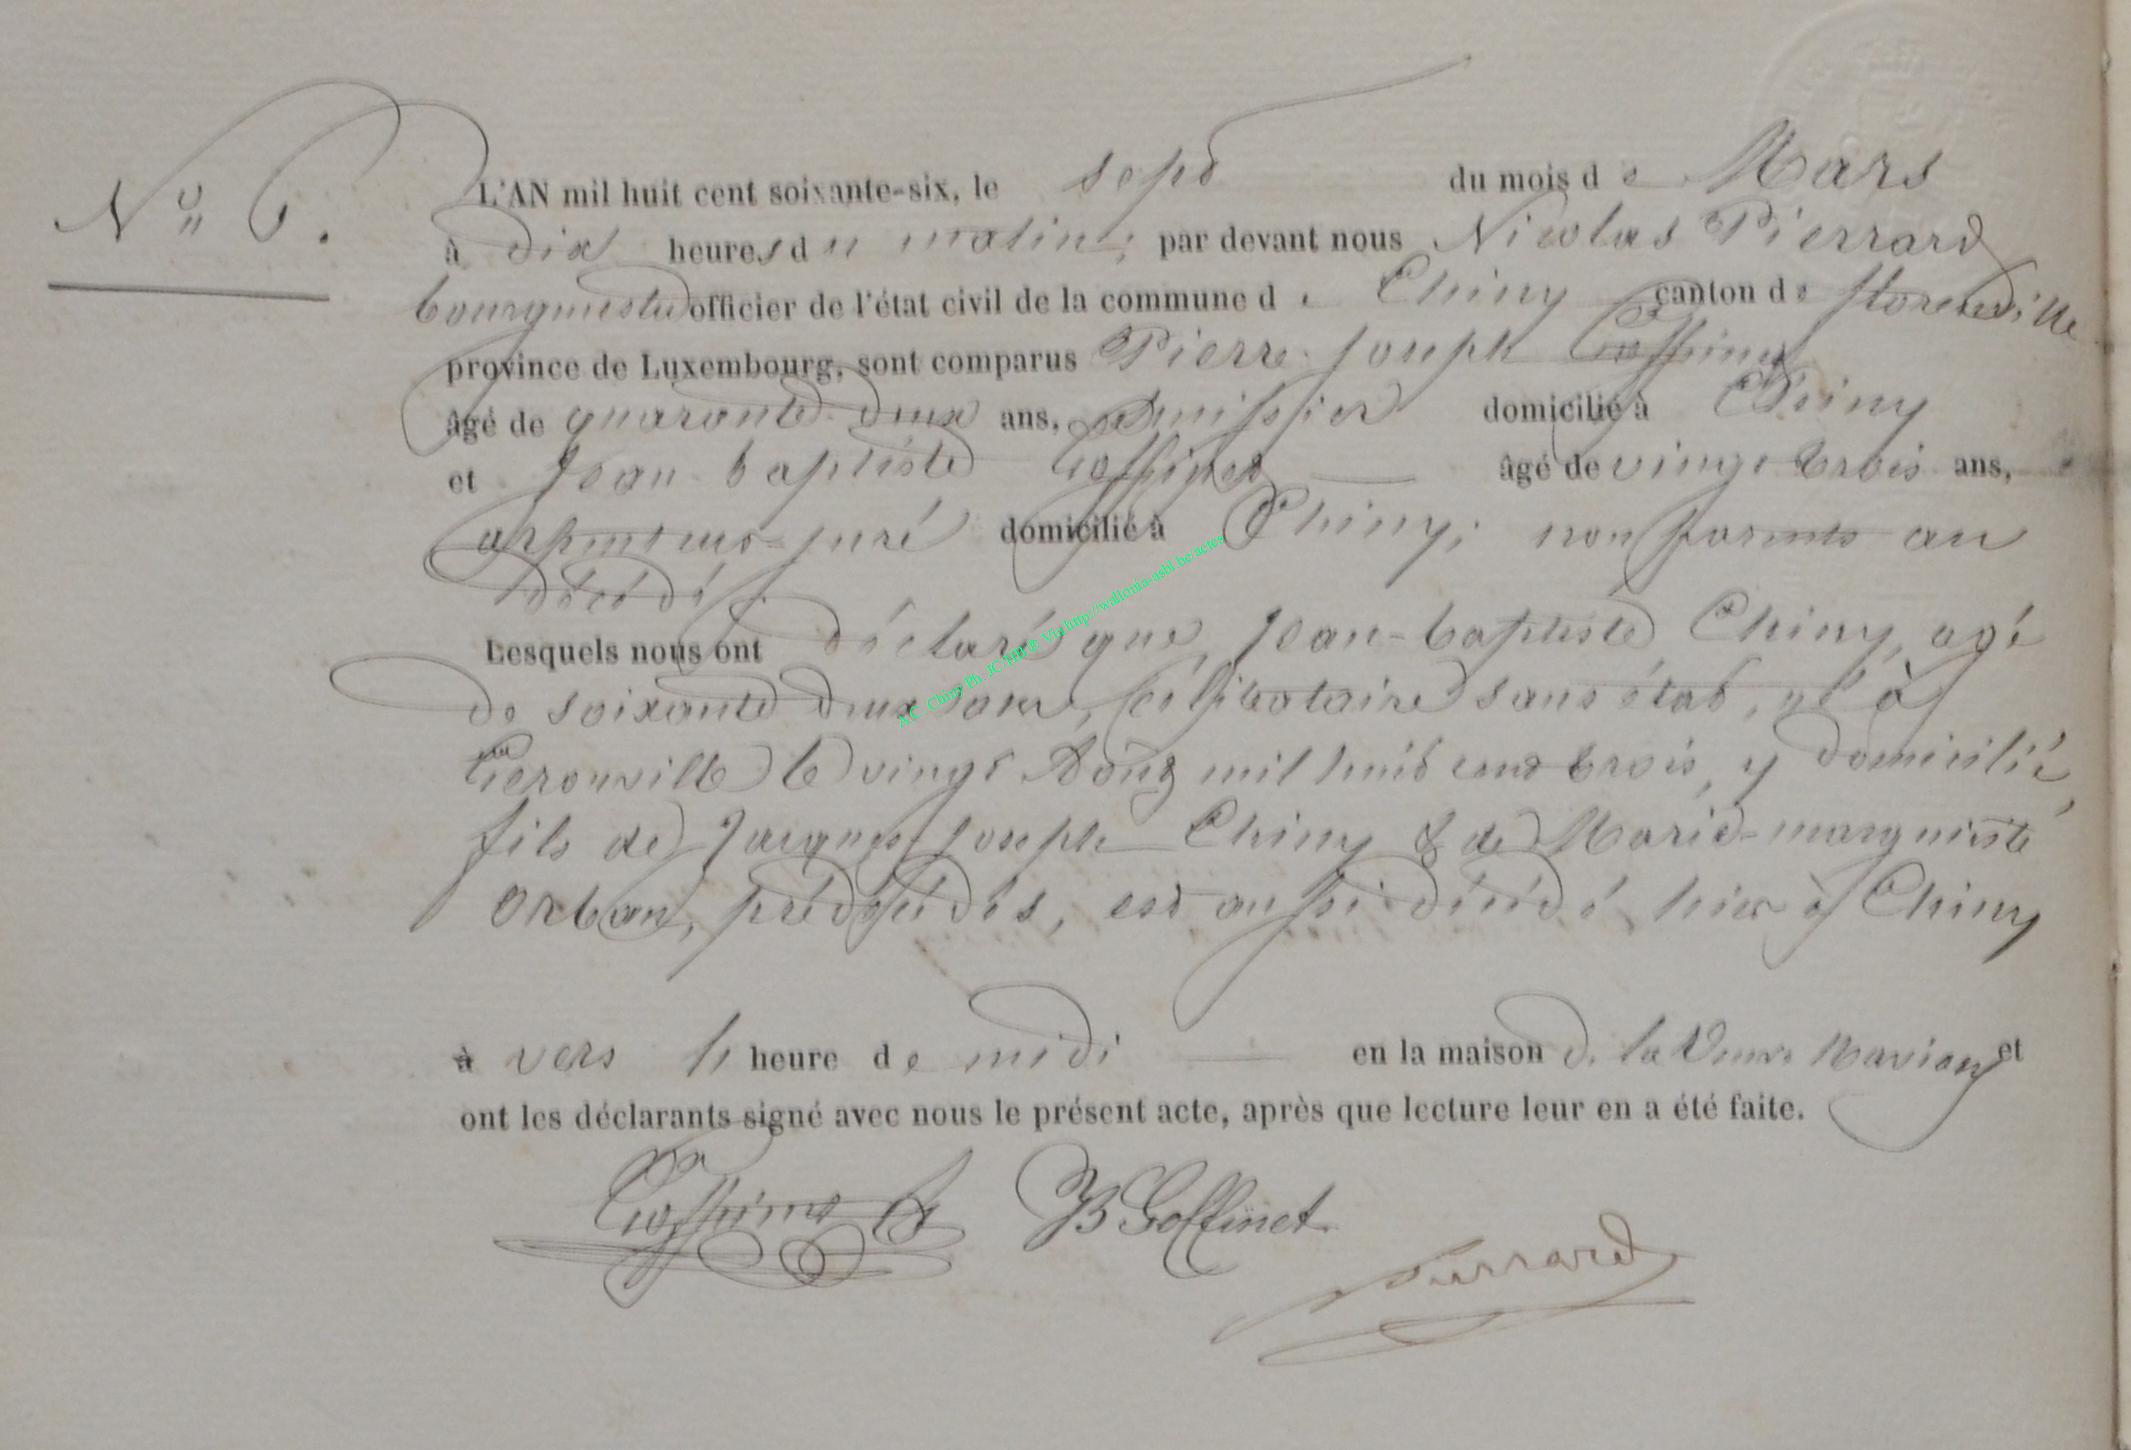 N° 6.
L'AN mil huit cent soixante-six, le sept du mois de Mars
à dix heures du matin, par devant nous Nicolas Pierrard
bourgmestre officier de l'état civil de la commune de Chiny canton de florenville
province de Luxembourg, sont comparus Pierre-joseph Goffinet
âgé de quarante deux ans, domicilié à Chiny
et Jean-baptiste Goffinet âgé de vingt trois ans,
arpenteur-juré domicilié à Chiny; non parents au
décédé.
Lesquels nous ont déclaré que, Jean-baptiste Chiny, agé
de soixante deux ans, célibataire sans état, né à
Gerouville le vingt Août mil huit cent trois, y domicilié,
fils de Jacques joseph Chiny & de Marie-marguerite
Orban, prédécédés, est aussi décédé hier à Chiny
à vers h heure de midi en la maison de la Veuve et
ont les déclarants signé avec nous le présent acte, après que lecture leur en a été faite.
Goffinet JB Goffinet
Pierrard
A.C. Chiny Ph. JC Via http://wallonia-asbl.be/actes